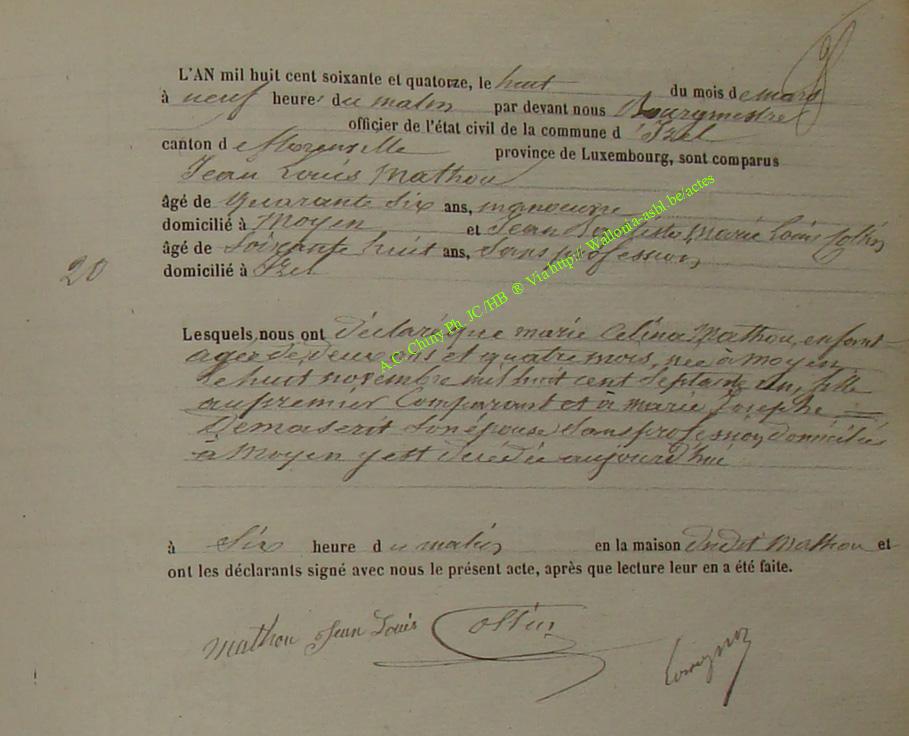 L'AN mil huit cent soixante et quatorze, le huit du mois de mars
à neuf heures du matin par devant nous Bourgmestre
officier de l'état civil de la commune d'Izel
canton de Florenville province de Luxembourg, sont comparus
Jean Louis Mathou
âgé de quarante six ans, manoeuvre
domicilié à Moyen et Jean Marie Louis
âgé de soixante huit ans, sans profession
domicilié à Izel
20
Lesquels nous ont déclaré que marie Celina Mathou, enfant
agée de deux ans et quatre mois, née à moyen
le huit novembre mil huit cent septante un, fille
au premier Comparant et à marie Josephe
son épouse sans profession, domiciliés
à Moyen y est décédée aujourd'hui
à Six heure du matin en la maison dudit Mathou et
ont les déclarants signé avec nous le présent acte, après que lecture leur en a été faite.
mathou Jean Louis
A.C. Chiny Ph. JC/HB ® Via http://Wallonia-asbl.be/actes